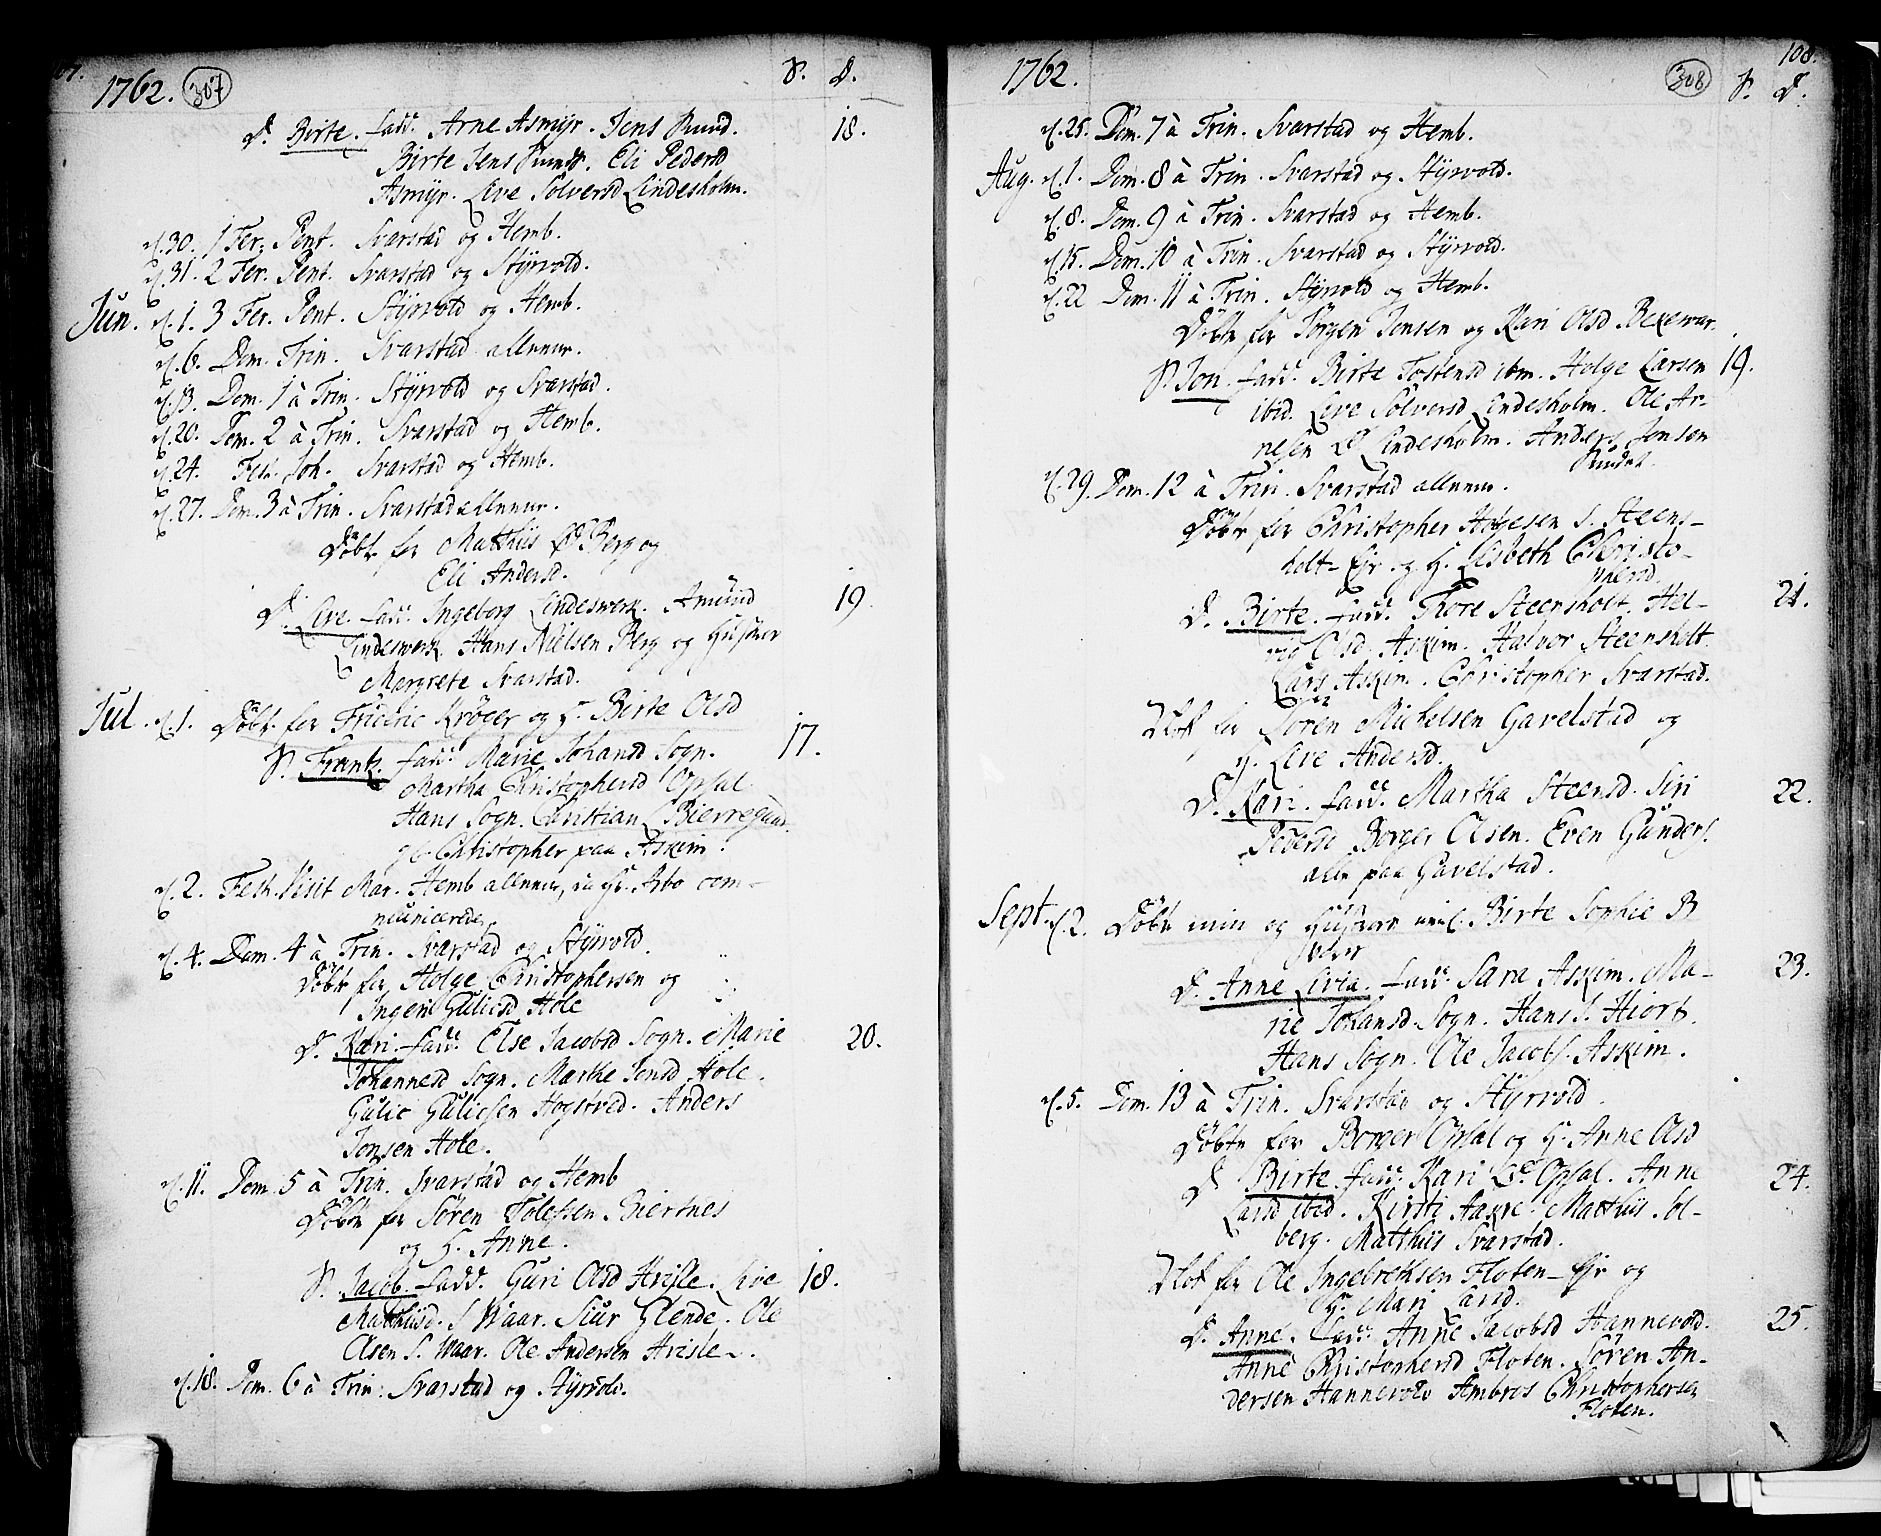 107.
1762. 307 S. D.
D. Birte. fadd. Arne Asmyr. Jens Ruud. 18.
Birte Jens Ruud. Eli Pedersd
Asmyr. Live Solversd Lindesholm.
d. 30. 1 Fer. Pent. Svarstad og Hemb.
d. 31. 2 Fer. Pent. Svarstad og Styrvold.
Jun. d. 1. 3 Fer. Pent. Styrvold og Hemb.
d. 6. Dom. Trin. Svarstad allene.
d. 13. Dom. 1 à Trin. Styrvold og Svarstad.
d. 20. Dom. 2 à Trin. Svarstad og Hemb.
d. 24. Fest. Joh. Svarstad og Hemb.
d. 27. Dom. 3 à Trin. Svarstad allene.
Döbt for Matthiis Berg og
Eli Andersd.
D. Live. fadd. Ingeborg Lindeswerk. Amund 19.
Lindeswerk. Hans Nielsen Berg og
Margrete Svarstad.
Jul. d. 1. Döbt for Frideric Kröger og H. Birte Olsd
S. Frantz. fadd. Marie Johansd Sogn. 17.
Martha Christophersd Opsal
Hans Sogn. Christian Bierregaard.
Christopher paa Askim.
d. 2. Fest. Visit Mar. Hemb allene, da Hr. Arbo com-
municerede,
d. 4. Dom. 4 à Trin. Svarstad og Styrvold.
Döbt for Holge Christophersen og
Ingeri Guliesd Hole
D. Kari. fadd. Else Jacobsd Sogn. Marie 20.
Johannesd Sogn. Marthe Jensd Hole.
Gulic Gulicsen Hogstved. Anders
Jonsen Hole.
d. 11. Dom. 5 à Trin. Svarstad og Hemb
Döbt for Sören Tolefsen Biertnes
og H. Anne.
S. Jacob. fadd. Guri Olsd Hvisle. Live 18.
Matthiisd. S Waar. Siur Glende. Ole
Olsen S. Waar. Ole Andersen Hvisle.
d. 18. Dom. 6 à Trin. Svarstad og Styrvold.
108.
1762. 308 S. D.
d. 25. Dom. 7 à Trin. Svarstad og Hemb.
Aug. d. 1. Dom. 8 à Trin. Svarstad og Styrvold.
d. 8. Dom. 9 à Trin. Svarstad og Hemb.
d. 15. Dom. 10 à Trin. Svarstad og Styrvold.
d. 22 Dom. 11 à Trin. Styrvold og Hemb.
Döbt for Jörgen Jonsen og Kari Olsd Bexewar.
S. Jon. fadd. Birte Tostensd ibm. Holge Larsen 19.
ibid. Live Solversd Lindesholm. Ole Ar-
nesen Lindesholm. Anders Jonsen
Rindal.
d. 29. Dom. 12 à Trin. Svarstad allene.
Döbt for Christopher Holgesen S. Steens-
holt-Ejr. og H. Lisbeth Christo-
phersd.
D. Birte. fadd. Thore Steensholt. Hel- 21.
vig Olsd Askim. Halvor Steensholt
Lars Askim. Christopher Svarstad.
Item for Sören Michelsen Gavelstad og
H. Live Andersd.
D. Kari. fadd. Martha Steensd. Siri 22.
Pedersd Borger Olsen. Even Gunders.
alle paa Gavelstad.
Sept. d. 2. Döbt min og Birte Sophie B
D. Anne Livia. fadd. Sara Askim. Ma- 23.
rie Johansd. Sogn. Hans S. Hiort.
Hans Sogn. Ole Jacobs. Askim.
d. 5. Dom. 13 à Trin. Svarstad og Styrvold.
Döbte for Borger Opsal og H. Anne Olsd
D Birte. fadd. Kari Opsal. Anne 24.
Larsd ibid. Kirsti Aanre. Matthiis Sol-
berg. Matthiis Svarstad.
Item for Ole Ingebrethsen Floten-Ejr og
H. Mari Larsd.
D. Anne. fadd. Anne Jacobsd Hannevold. 25.
Anne Christophersd Floten. Sören An-
dersen Hannevold Ambros Christophersen
Floten.